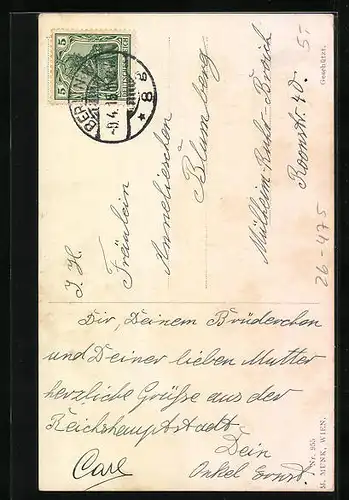 5 5
BERLIN
-9.4.15
* 8 b
5.-
I. H.
Fräulein
Annelieschen
Blumberg
Mülheim-Ruhr-Broich
Roonstr. 40.
Geschützt.
26-475
Dir, Deinem Brüderchen
und Deiner lieben Mutter
herzliche Grüße aus der
Reichshauptstadt
Dein
Onkel Ernst.
Carl
Nr. 955
M. MUNK, WIEN.